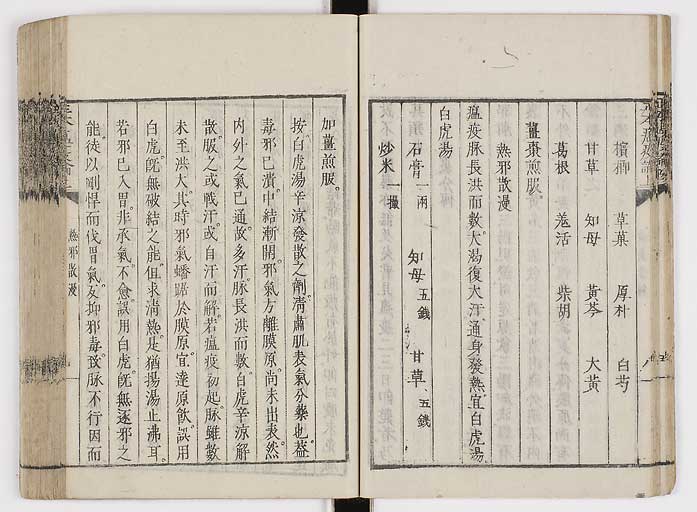 檳榔 草菓 厚朴 白芍
甘草 知母 黃芩 大黃
葛根 羗活 柴胡
薑棗煎服
熱邪散漫
瘟疫脉長洪而數大渴復大汗通身發熱宜白虎湯
白虎湯
石膏一兩 知母五錢 甘草五錢
炒米一撮
加薑煎服
按白虎湯辛涼發散之劑清肅肌表氣分藥也葢
毒邪已潰中結漸開邪氣方離膜原尚未出表然
內外之氣已通故多汗脉長洪而數白虎辛涼解
散服之或戰汗或自汗而解若瘟疫初起脉雖數
未至洪大其時邪氣蟠踞於膜原宜達原飲誤用
白虎旣無破結之能但求清熱是猶揚湯止沸耳
若邪已入胃非承氣不愈誤用白虎旣無逐邪之
能徒以剛悍而伐胃氣反抑邪毒致脉不行因而
熱邪散漫